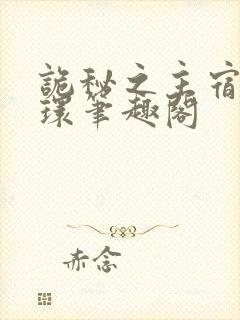 詭秘之主宿
環筆趣閣
赤念